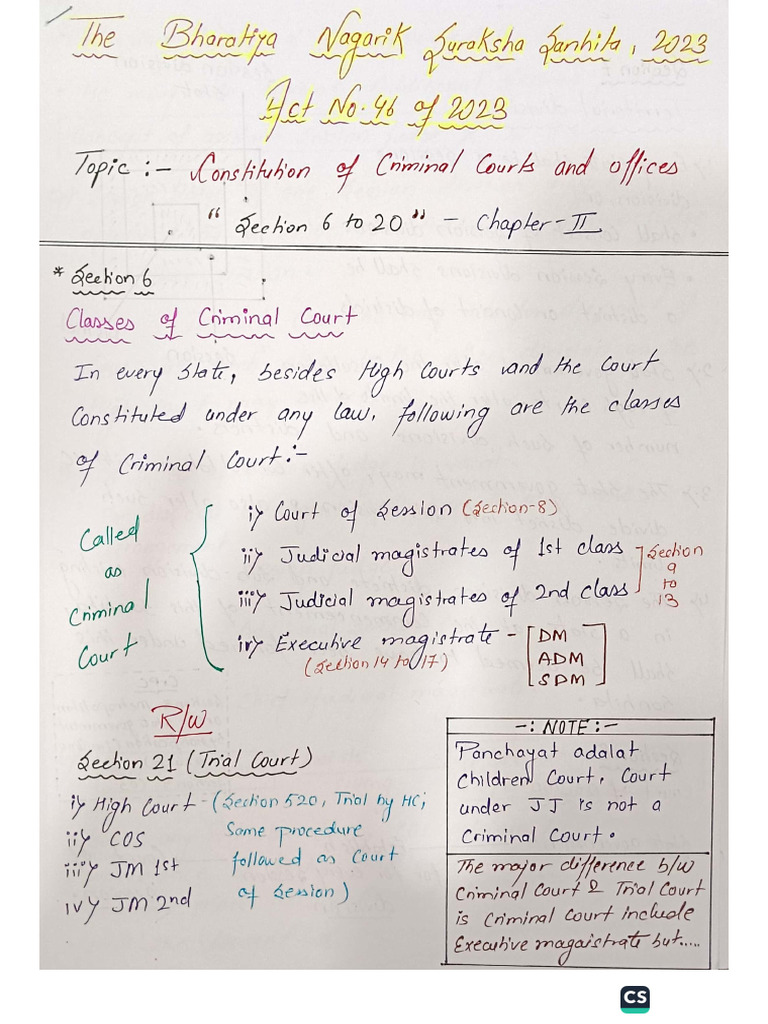 The Bharatiya Nagarik Suraksha Sanhita, 2023
Act No. 46 of 2023
Topic :- Constitution of Criminal Courts and offices
"Section 6 to 20" - Chapter-II
* Section 6
Classes of Criminal Court
In every state, besides High Courts and the Court
Constituted under any law, following are the classes
of Criminal Court:-
Called
as
Criminal
Court
i) Court of Session (Section-8)
ii) Judicial magistrates of 1st class
iii) Judicial magistrates of 2nd class
Section
9
to
13
iv) Executive magistrate -
(Section 14 to 17)
DM
ADM
SDM
R/W
Section 21 (Trial Court)
i) High Court - (Section 520, Trial by HC;
ii) COS Same procedure
iii) JM 1st followed as Court
iv) JM 2nd of Session)
-: NOTE :-
Panchayat adalat
Children Court, Court
under JJ is not a
Criminal Court.
The major difference b/w
Criminal Court & Trial Court
is Criminal Court include
Executive magaistrate but.....
CS